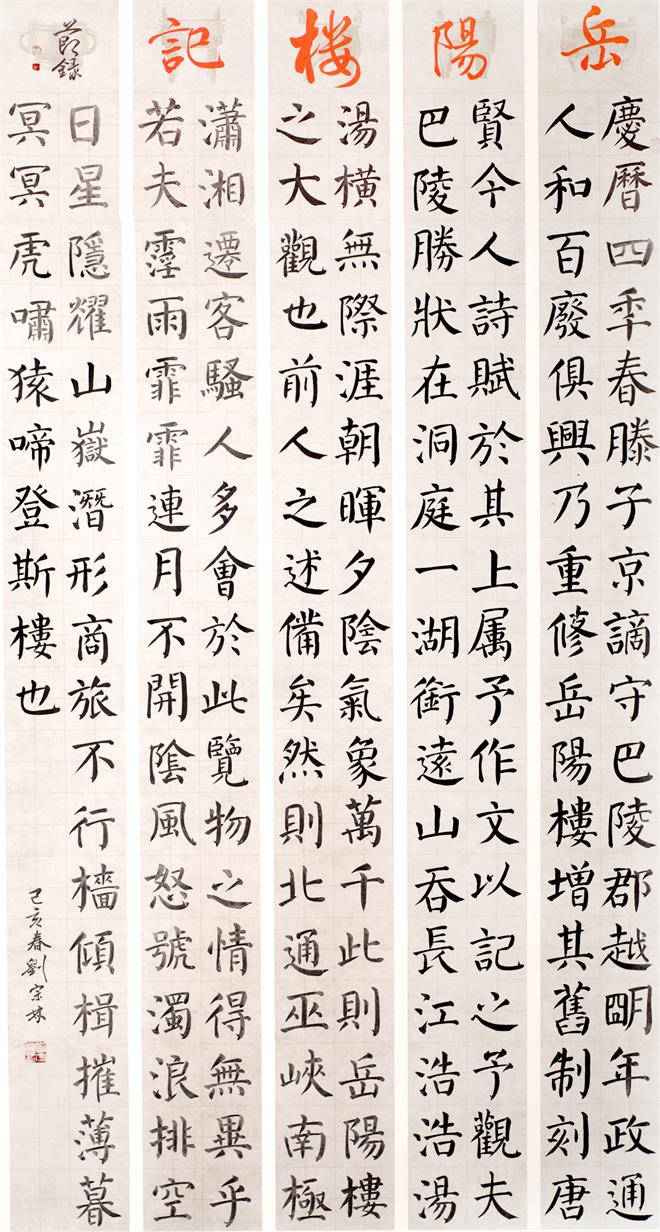 岳陽楼記
慶曆四秊春滕子京謫守巴陵郡越朙年政通
人和百廢俱興乃重修岳陽樓增其舊制刻唐
賢今人詩賦於其上属予作文以記之予觀夫
巴陵勝狀在洞庭一湖銜遠山吞長江浩浩湯
湯橫無際涯朝暉夕陰氣象萬千此則岳陽樓
之大觀也前人之述備矣然則北通巫峽南極
瀟湘遷客騷人多會於此覽物之情得無異乎
若夫霪雨霏霏連月不開陰風怒號濁浪排空
日星隱耀山嶽潛形商旅不行檣傾楫摧薄暮
冥冥虎嘯猿啼登斯樓也
節錄
己亥春劉宗林